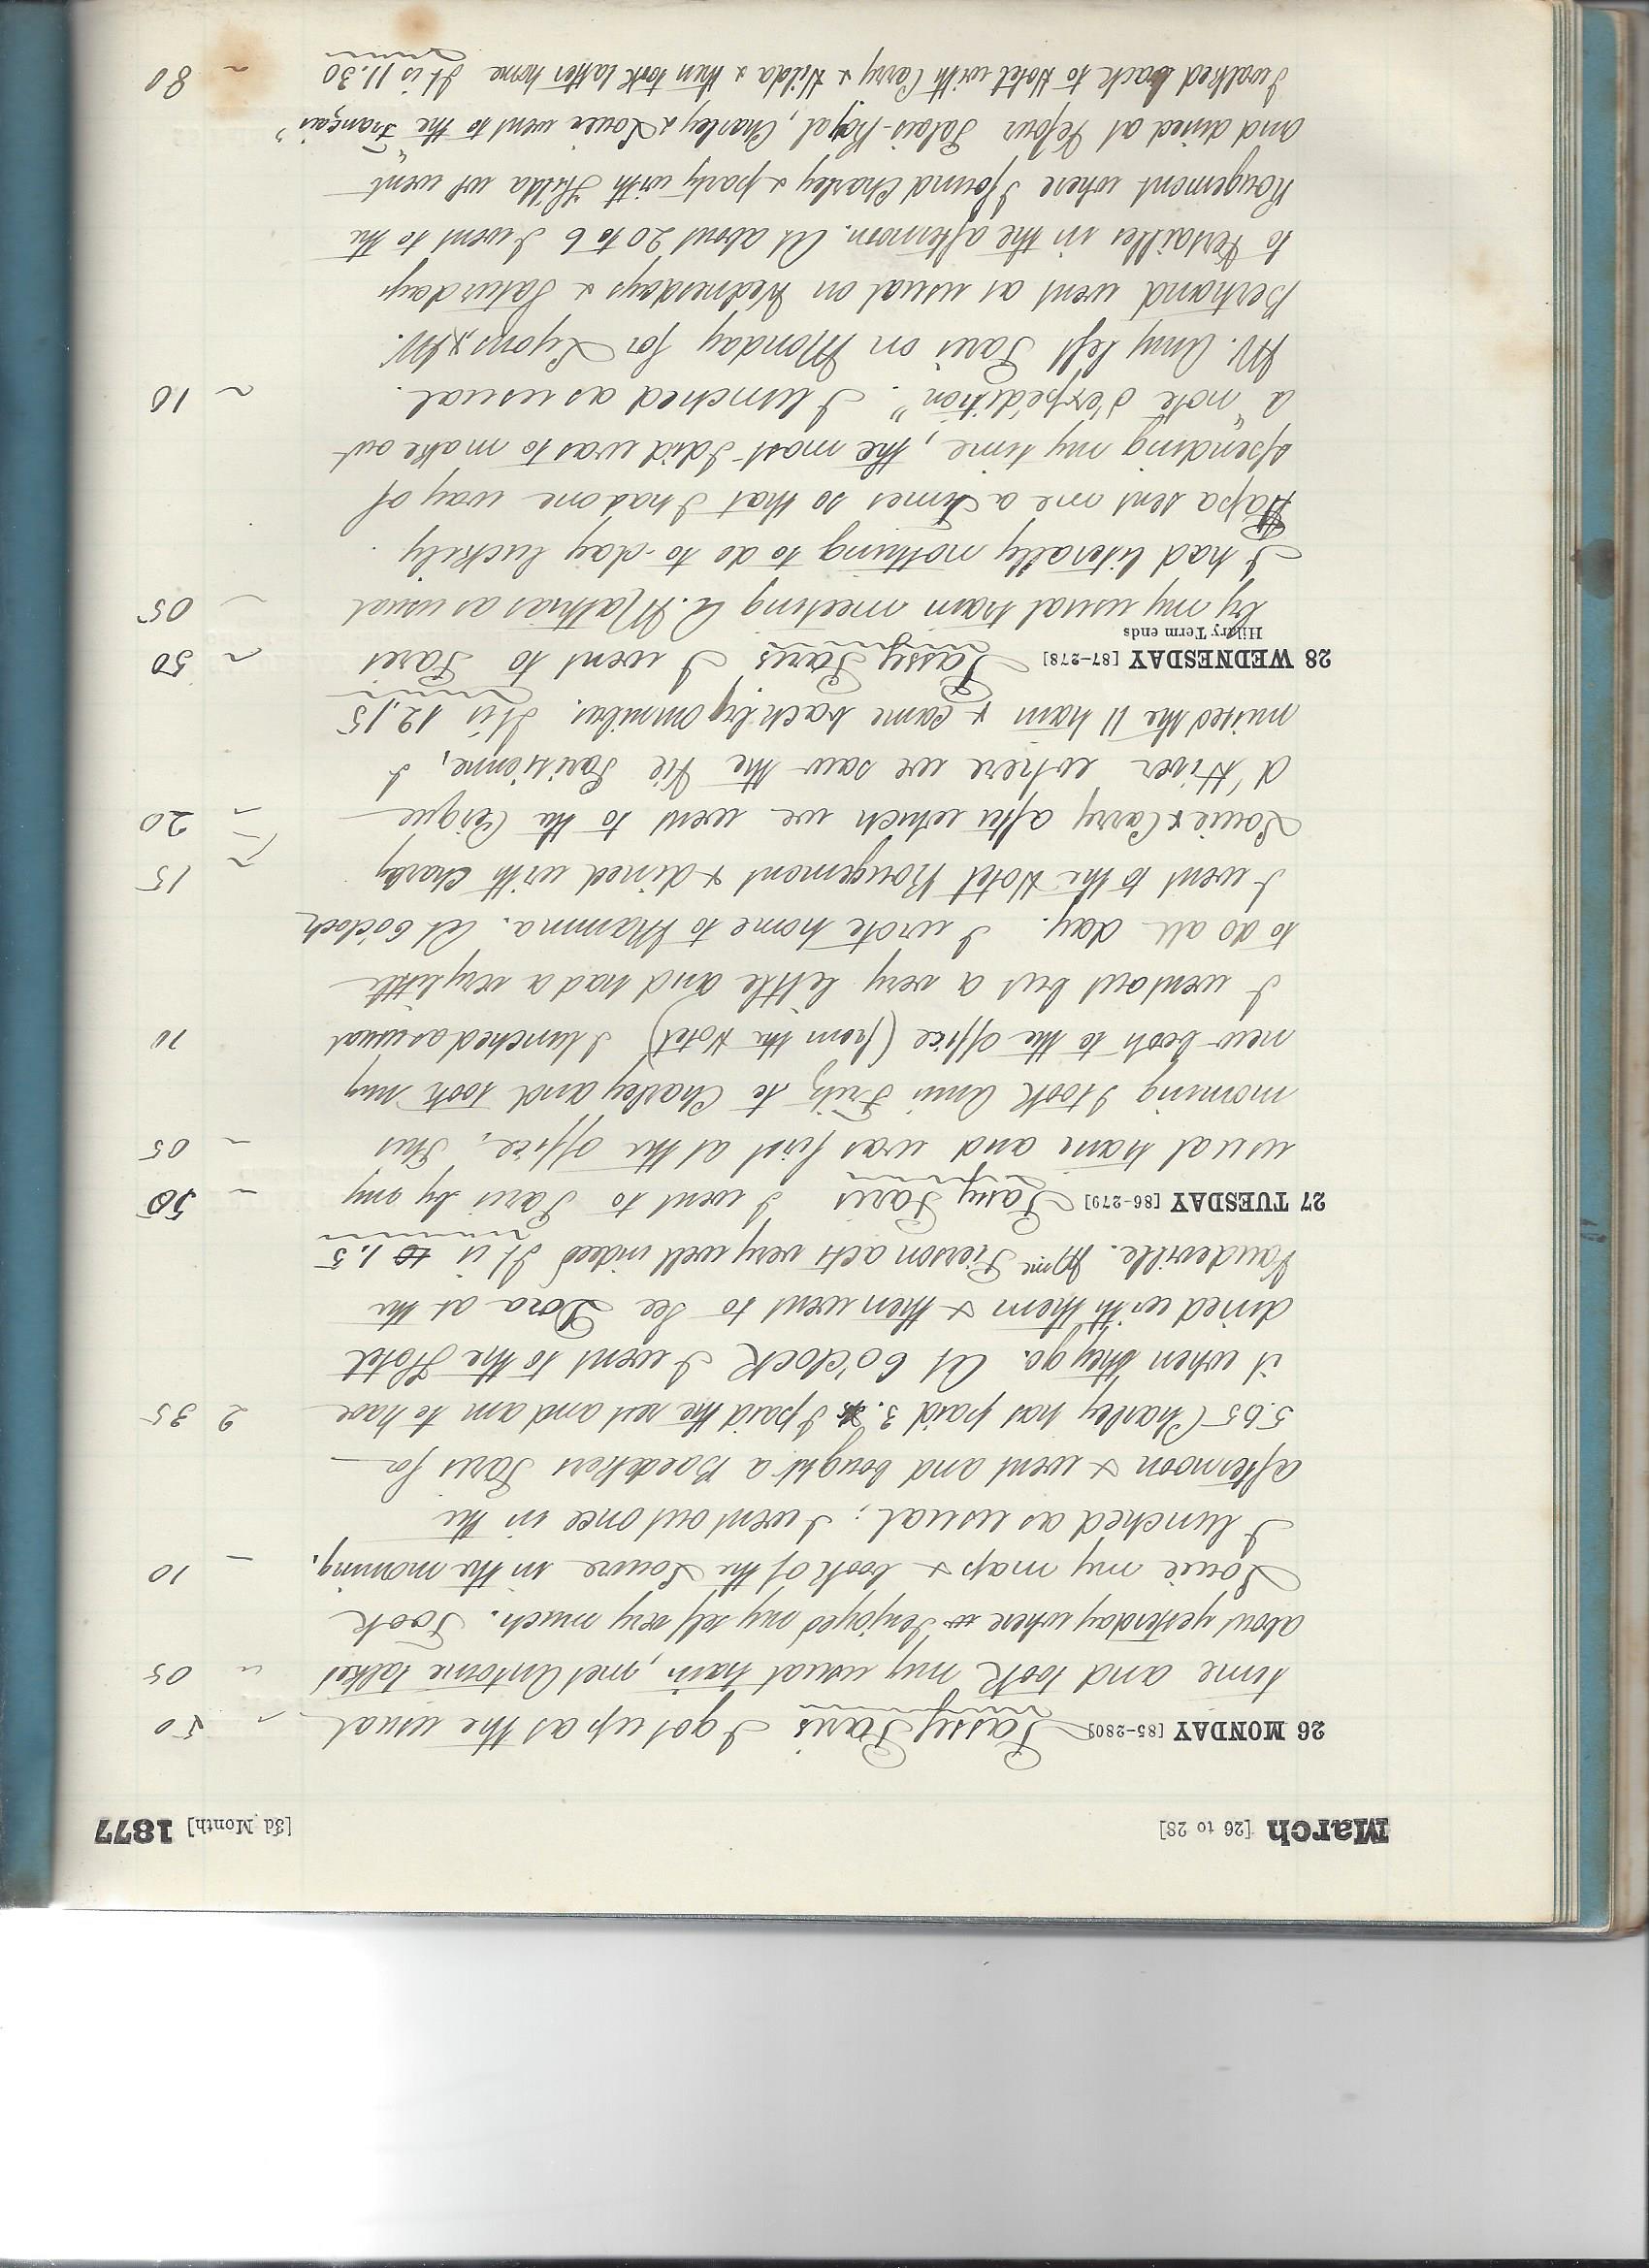 March [26 to 28] [3d Month] 1877
26 MONDAY [85-280] Passy Paris I got up at the usual ~ 50
time and took my usual train, met Antoine talked " 05
about yesterday where I enjoyed my self very much. Took
Louie my map & book of the Louvre in the morning. – 10
I lunched as usual; I went out once in the
afternoon & went and bought a Baedekers Paris for
5.65 Charley has paid 3. I paid the rest and am to have 2 35
it when they go. At 6 o'clock I went to the Hotel
dined with them & then went to see Dora at the
Vaudeville. Mme Pierson acts very well indeed It is 1.5
27 TUESDAY [86-279] Passy Paris I went to Paris by my ~ 50
usual tram and was first at the office. This ~ 05
morning I took Ami Fritz to Charley and took my
new book to the office (from the Hotel) I lunched as usual 10
I went out but a very little and had a very little
to do all day. I wrote home to Mamma. At 6 o'clock
I went to the Hotel Rougemont & dined with Charley ~ 15
Louie & Carry after which we went to the Cirque ~ 20
d'Hiver where we saw the Vie Parisienne, I
missed the 11 tram & came back by omnibus. It is 12.15
28 WEDNESDAY [87-278] Passy Paris I went to Paris ~ 50
Hilary Term ends
by my usual tram meeting A. Mathias as usual ~ 05
I had literally nothing to do to-day luckily.
Papa sent me a Times so that I had one way of
spending my time, the most I did was to make out
a "note d'expédition". I lunched as usual. ~ 10
M. Amy left Paris on Monday for Lyons & M.
Bertrand went as usual on Wednesdays & Saturdays
to Versailles in the afternoon. At about 20 to 6 I went to the
Rougemont where I found Charley & party with Hilda we went
and dined at Vefour Palais-Royal, Charley & Louie went to the "Français"
I walked back to Hotel with Carry & Hilda & then took latter home It is 11.30 ~ 80